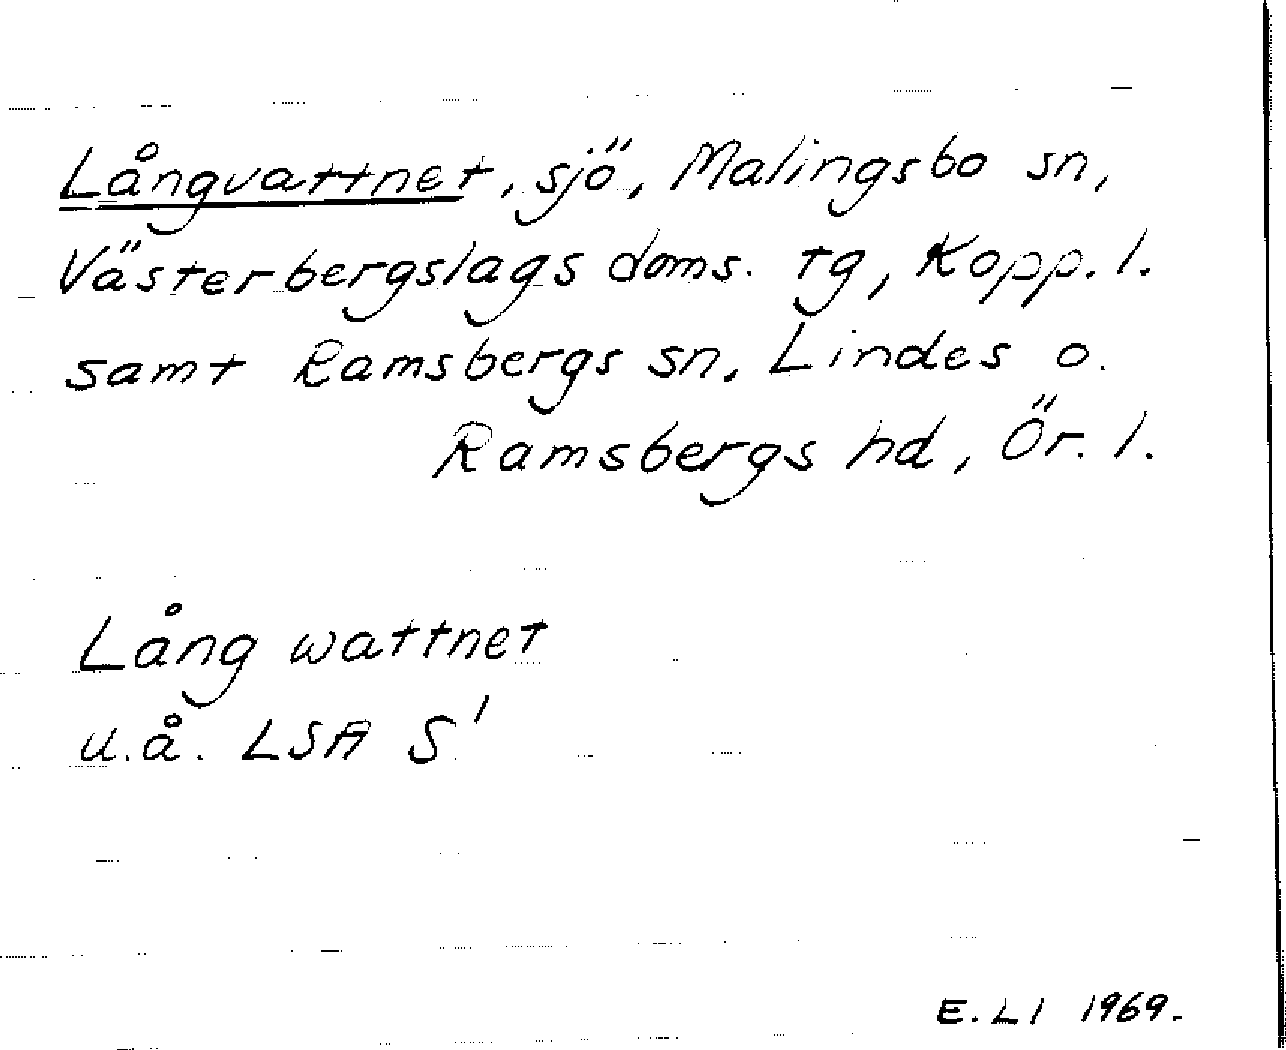 Långvattnet, sjö, Malingsbo sn,
Västerbergslags doms. tg, Kopp. l.
samt Ramsbergs sn, Lindes o.
Ramsbergs hd, Ör. l.
Lång wattnet
u.å. LSA S'
E. Ll 1969.